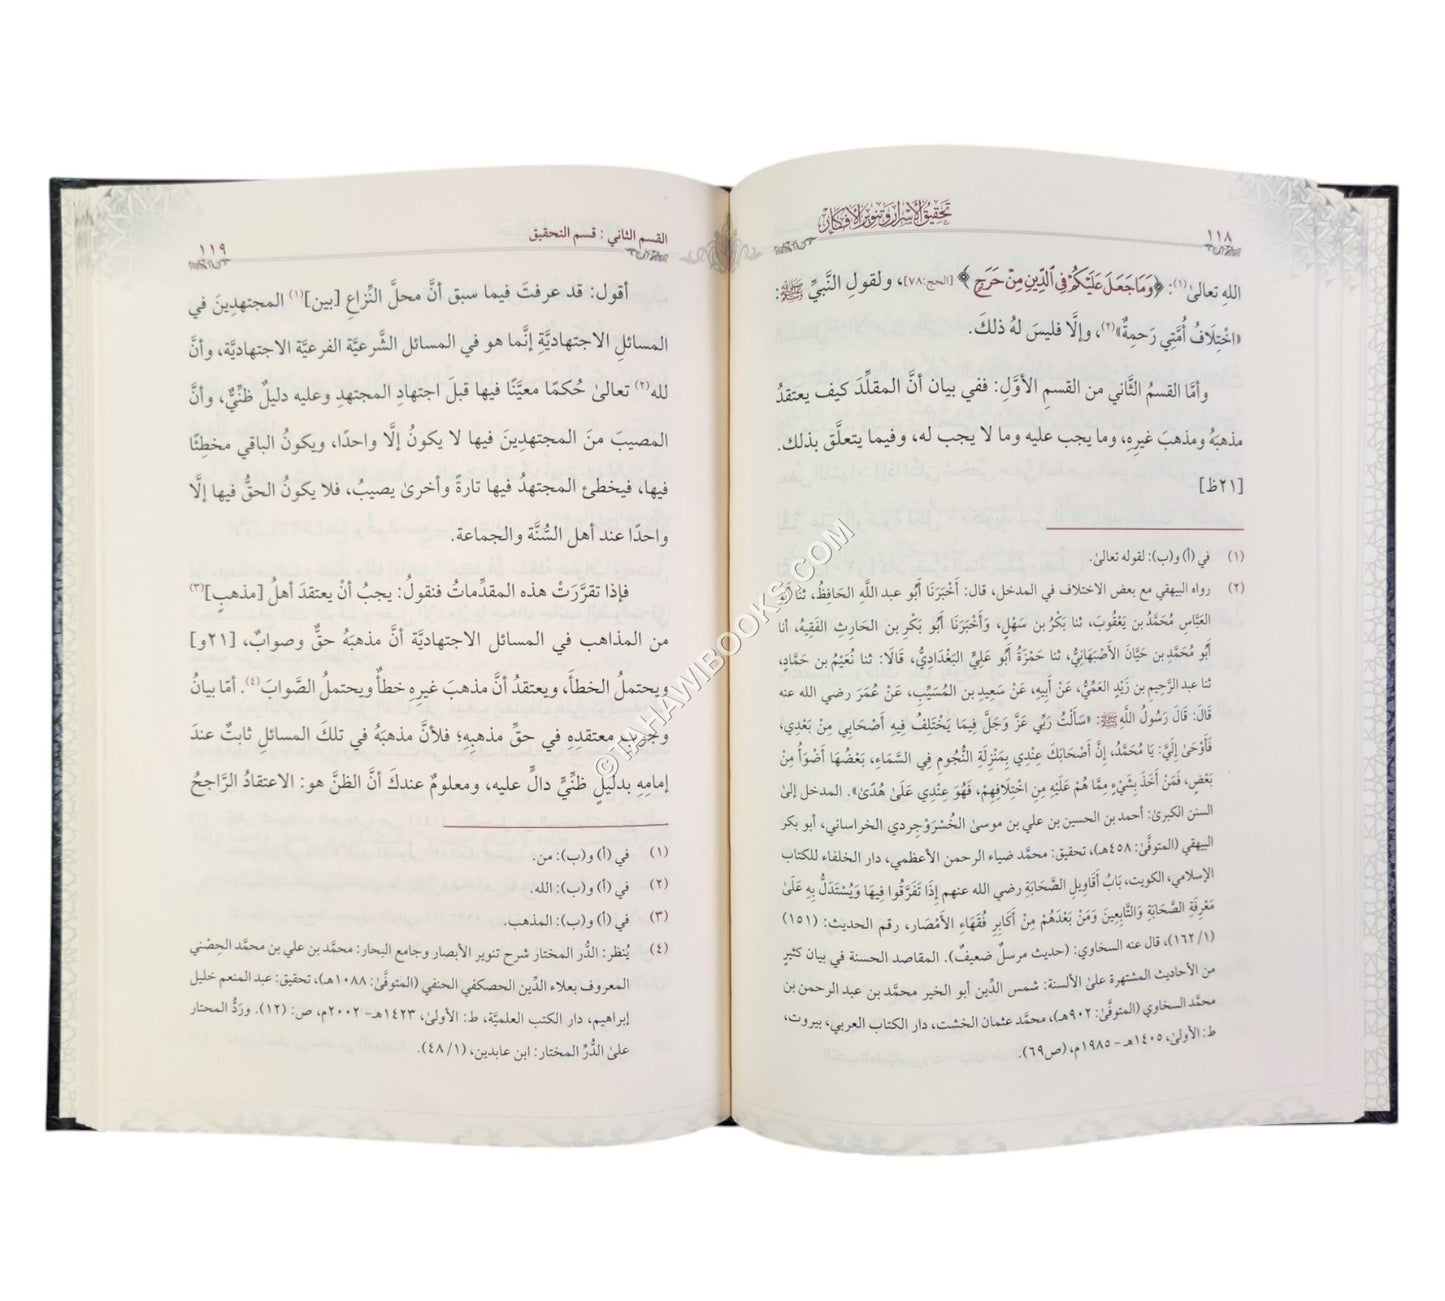 تحقيق الأسرار وتنوير الأفكار
١١٨
اللهِ تعالىٰ(١): ﴿وَمَا جَعَلَ عَلَيْكُمْ فِي ٱلدِّينِ مِنْ حَرَجٍ﴾ [الحج:٧٨]، ولقولِ النَّبيِّ ﷺ:
«اخْتِلَافُ أُمَّتِي رَحمةٌ»(٢)، وإلَّا فليسَ لهُ ذلكَ.
وأمَّا القسمُ الثَّاني من القسمِ الأوَّلِ: ففي بيان أنَّ المقلِّدَ كيف يعتقدُ
مذهبَهُ ومذهبَ غيرِهِ، وما يجب عليه وما لا يجب له، وفيما يتعلَّق بذلك.
[٢١ظ]
(١) في (أ) و(ب): لقوله تعالىٰ.
(٢) رواه البيهقي مع بعض الاختلاف في المدخل، قال: أَخْبَرَنَا أَبُو عبد اللَّهِ الحَافِظُ، ثنا أَبُو
العَبَّاسِ مُحَمَّدُ بن يَعْقُوبَ، ثنا بَكْرُ بن سَهْلٍ، وَأَخْبَرَنَا أَبُو بَكْرِ بن الحَارِثِ الفَقِيهُ، أنا
أَبُو مُحَمَّدِ بن حَيَّانَ الأَصْبَهَانِيُّ، ثنا حَمْزَةُ أَبُو عَلِيٍّ البَغْدَادِيُّ، قَالَا: ثنا نُعَيْمُ بن حَمَّادٍ،
ثنا عبد الرَّحِيمِ بن زَيْدٍ العَمِّيُّ، عَنْ أَبِيهِ، عَنْ سَعِيدِ بن المُسَيِّبِ، عَنْ عُمَرَ رضي الله عنه
قَالَ: قَالَ رَسُولُ اللَّهِ ﷺ: «سَأَلْتُ رَبِّي عَزَّ وَجَلَّ فِيمَا يَخْتَلِفُ فِيهِ أَصْحَابِي مِنْ بَعْدِي،
فَأَوْحَىٰ إِلَيَّ: يَا مُحَمَّدُ، إِنَّ أَصْحَابَكَ عِنْدِي بِمَنْزِلَةِ النُّجُومِ فِي السَّمَاءِ، بَعْضُهَا أَضْوَأُ مِنْ
بَعْضٍ، فَمَنْ أَخَذَ بِشَيْءٍ مِمَّا هُمْ عَلَيْهِ مِنِ اخْتِلَافِهِمْ، فَهُوَ عِنْدِي عَلَىٰ هُدًىٰ». المدخل إلىٰ
السنن الكبرىٰ: أحمد بن الحسين بن علي بن موسىٰ الخُسْرَوْجِردي الخراساني، أبو بكر
البيهقي (المتوفَّىٰ: ٤٥٨هـ)، تحقيق: محمَّد ضياء الرحمن الأعظمي، دار الخلفاء للكتاب
الإسلامي، الكويت، بَابُ أَقَاوِيلِ الصَّحَابَةِ رضي الله عنهم إِذَا تَفَرَّقُوا فِيهَا وَيُسْتَدَلُّ بِهِ عَلَىٰ
مَعْرِفَةِ الصَّحَابَةِ وَالتَّابِعِينَ وَمَنْ بَعْدَهُمْ مِنْ أَكَابِرِ فُقَهَاءِ الأَمْصَارِ، رقم الحديث: (١٥١)
(١/ ١٦٢)، قال عنه السخاوي: (حديث مرسلٌ ضعيفٌ). المقاصد الحسنة في بيان كثيرٍ
من الأحاديث المشتهرة علىٰ الألسنة: شمس الدِّين أبو الخير محمَّد بن عبد الرحمن بن
محمَّد السخاوي (المتوفَّىٰ: ٩٠٢هـ)، محمَّد عثمان الخشت، دار الكتاب العربي، بيروت،
ط: الأولىٰ، ١٤٠٥هـ - ١٩٨٥م، (ص٦٩).
القسم الثاني : قسم التحقيق
١١٩
أقول: قد عرفتَ فيما سبق أنَّ محلَّ النِّزاعِ [بين](١) المجتهدِينَ في
المسائلِ الاجتهاديَّةِ إنَّما هو في المسائل الشَّرعيَّة الفرعيَّة الاجتهاديَّة، وأنَّ
لله(٢) تعالىٰ حُكمًا معيَّنًا فيها قبلَ اجتهادِ المجتهدِ وعليه دليلٌ ظنِّيٌّ، وأنَّ
المصيبَ منَ المجتهدِينَ فيها لا يكونُ إلَّا واحدًا، ويكونُ الباقي مخطِئًا
فيها، فيخطئ المجتهدُ فيها تارةً وأخرىٰ يصيبُ، فلا يكونُ الحقُّ فيها إلَّا
واحدًا عند أهل السُّنَّة والجماعة.
فإذا تقرَّرَتْ هذه المقدِّماتُ فنقولُ: يجبُ أنْ يعتقدَ أهلُ [مذهبٍ](٣)
من المذاهب في المسائل الاجتهاديَّة أنَّ مذهبَهُ حقٌّ وصوابٌ، [٢١و]
ويحتملُ الخطأَ، ويعتقدُ أنَّ مذهبَ غيرِهِ خطأٌ ويحتملُ الصَّوابَ(٤). أمّا بيانُ
وجوبِ معتقدِهِ في حقِّ مذهبِهِ؛ فلأنَّ مذهبَهُ في تلكَ المسائلِ ثابتٌ عندَ
إمامِهِ بدليلٍ ظنِّيٍّ دالٍّ عليه، ومعلومٌ عندكَ أنَّ الظنَّ هو: الاعتقادُ الرَّاجحُ
(١) في (أ) و(ب): من.
(٢) في (أ) و(ب): الله.
(٣) في (أ) و(ب): المذهب.
(٤) يُنظر: الدُّر المختار شرح تنوير الأبصار وجامع البحار: محمَّد بن علي بن محمَّد الحِصْني
المعروف بعلاء الدِّين الحصكفي الحنفي (المتوفَّىٰ: ١٠٨٨هـ)، تحقيق: عبد المنعم خليل
إبراهيم، دار الكتب العلميَّة، ط: الأولىٰ، ١٤٢٣هـ - ٢٠٠٢م، ص: (١٢). وردُّ المحتار
علىٰ الدُّرِّ المختار: ابن عابدين، (١/ ٤٨).
©TAHAWIBOOKS.COM